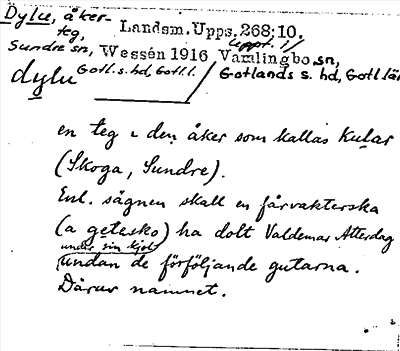 Dylu, åker-
teg, Landsm. Upps. 268:10.
Uppt. i
Sundre sn, Wessén 1916 Vamlingbo sn,
dylu Gotl. s. hd, Gotl. l. / Gotlands s. hd, Gotl. län
en teg i den åker som kallas kular
(Skoga, Sundre).
Enl. sägnen skall en fårvakterska
(a getesko) ha dolt Valdemar Atterdag
under sin kjol
undan de förföljande gutarna.
Därav namnet.